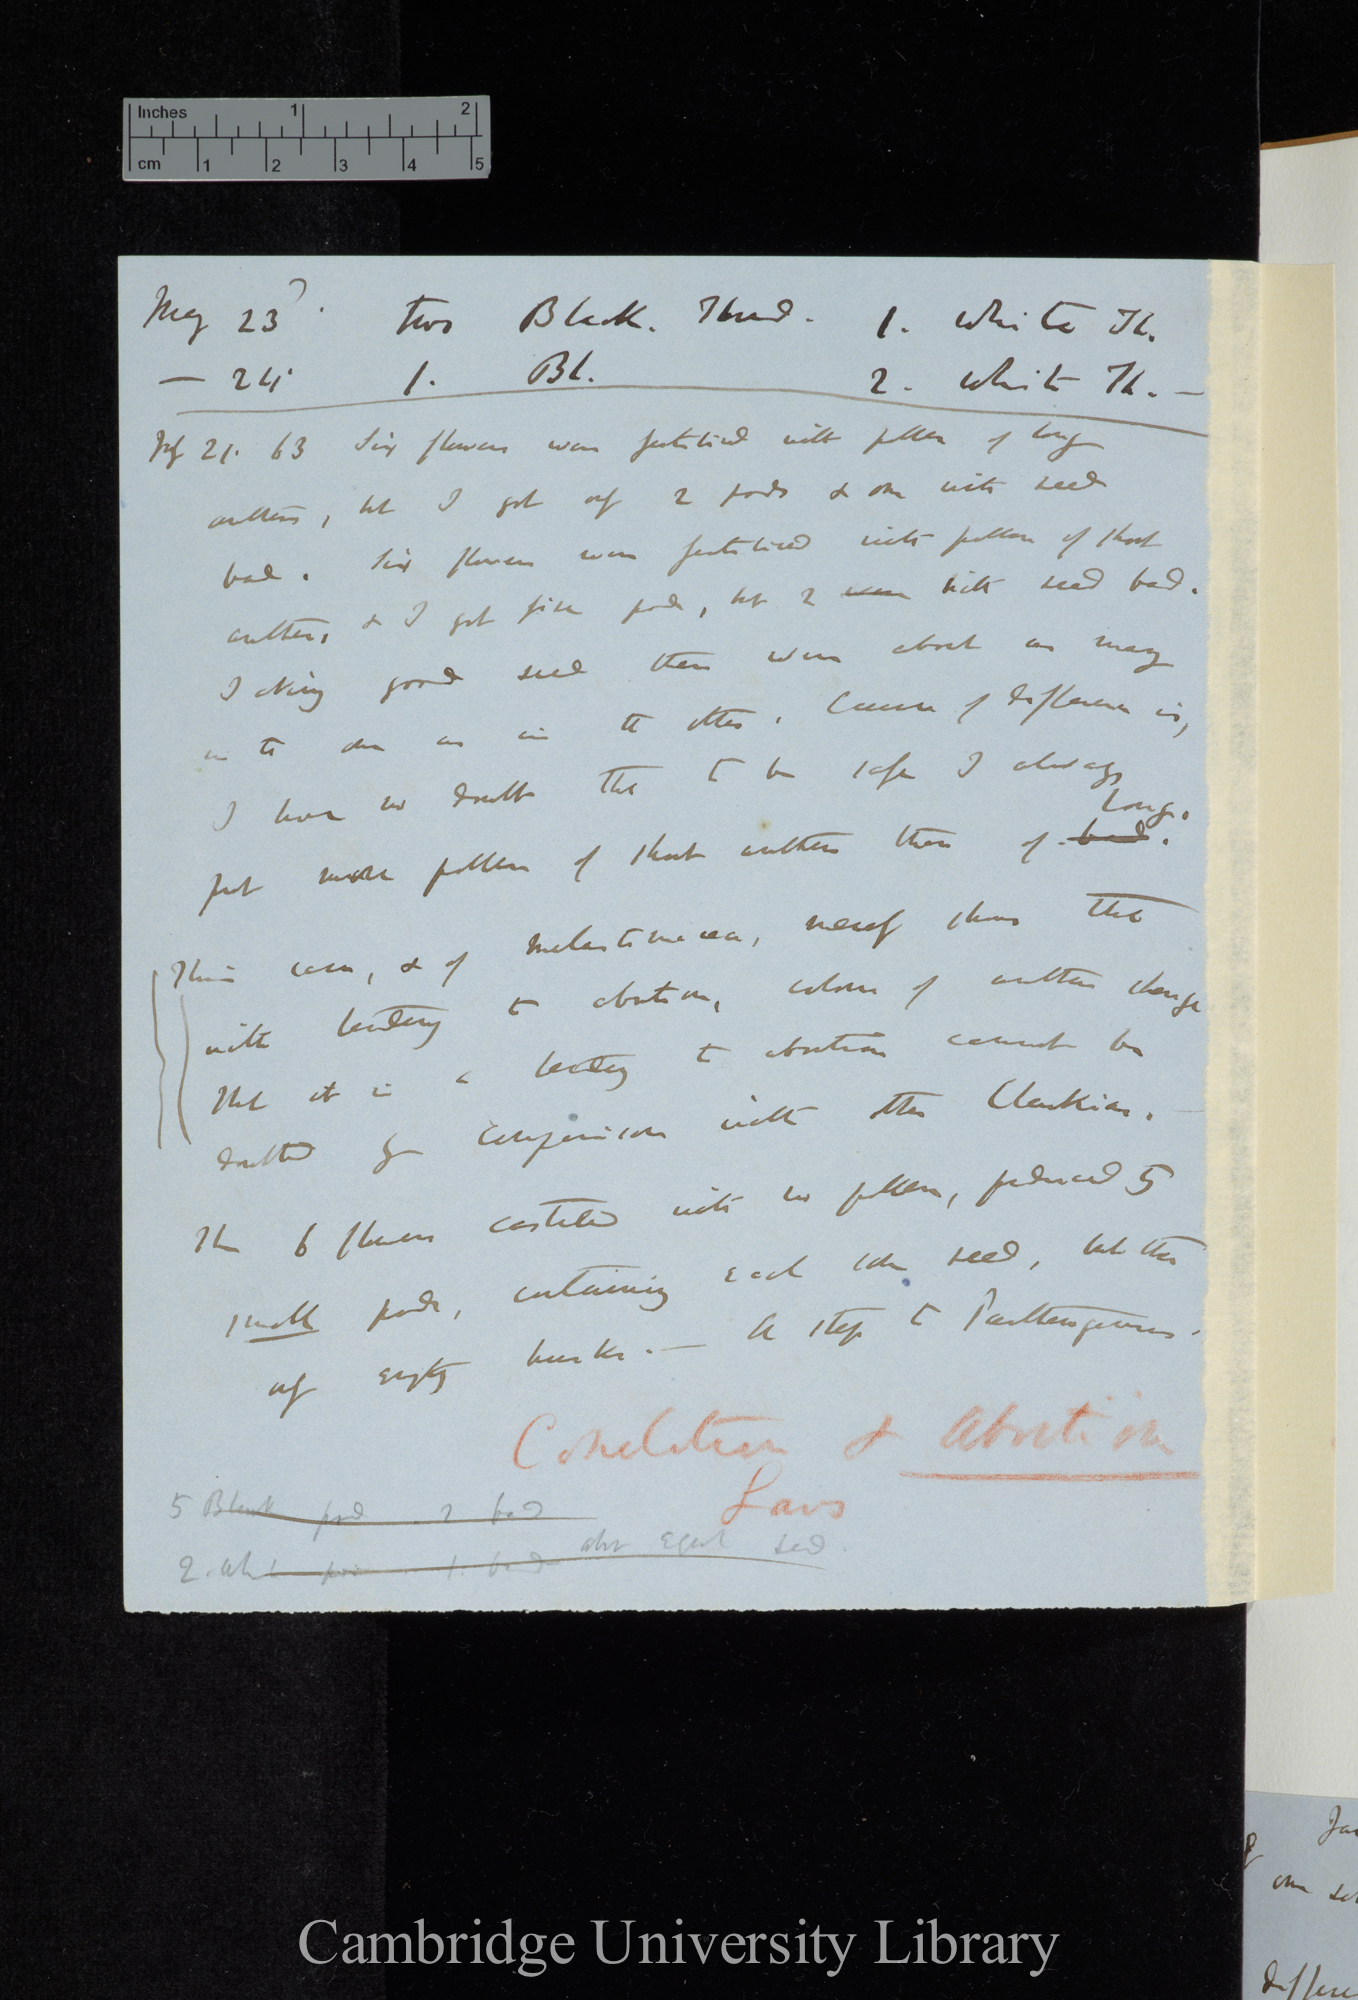 Inches 1 2
cm 1 2 3 4 5
May 23d. two Black. Thread. 1. White Th.
— 24 1. Bl. 2. White Th. —
21. 63 Six flowers were fertilised with pollen of long
anthers, but I got only 2 pods & one with seed
bad. Six flowers were fertilised with pollen of short
anthers & I got five pods, but 2 were with seed bad.
Taking good seed there were about as many
in the one as in the other. Cause of difference is,
I have no doubt that to be safe I always
long.
put more pollen of short anthers than of bad.
This case, & of Melastomaceæ, merely shows that
with tendency to abortion, colour of anthers change
That it is a tendency to abortion cannot be
doubted from comparison with other Clarkias. —
The 6 flowers castrated with no pollen, produced 5
small pods, containing each some seed, but other
only empty husks. — A step to Parthenogenesis.
Correlation & Abortion
Laws
5 Black pod . 2 bad
abt equal seed.
2. White pods 1. bad
Cambridge University Library
Jan
one
differe